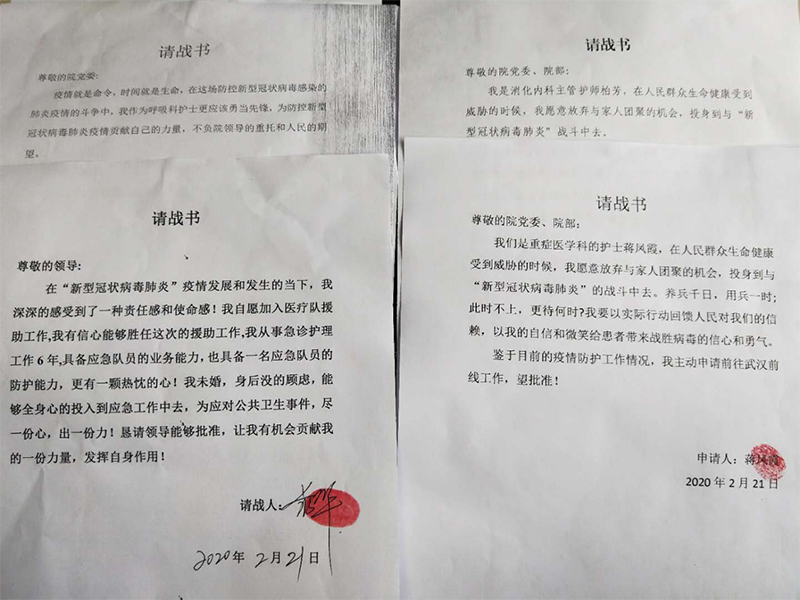 请战书
尊敬的院党委:
疫情就是命令,时间就是生命,在这场防控新型冠状病毒感染的
肺炎疫情的斗争中,我作为呼吸科护士更应该勇当先锋,为防控新型
冠状病毒肺炎疫情贡献自己的力量,不负院领导的重托和人民的期
望。
请战书
尊敬的领导:
在“新型冠状病毒肺炎”疫情发展和发生的当下,我
深深的感受到了一种责任感和使命感!我自愿加入医疗队援
助工作,我有信心能够胜任这次的援助工作,我从事急诊护理
工作 6 年,具备应急队员的业务能力,也具备一名应急队员的
防护能力,更有一颗热忱的心!我未婚,身后没的顾虑,能
够全身心的投入到应急工作中去,为应对公共卫生事件,尽
一份心,出一份力!恳请领导能够批准,让我有机会贡献我
的一份力量,发挥自身作用!
请战人:
2020 年 2 月 21 日
请战书
尊敬的院党委、院部:
我是消化内科主管护师柏芳,在人民群众生命健康受到
威胁的时候,我愿意放弃与家人团聚的机会,投身到与“新
型冠状病毒肺炎”战斗中去。
请战书
尊敬的院党委、院部:
我们是重症医学科的护士蒋风霞,在人民群众生命健康
受到威胁的时候,我愿意放弃与家人团聚的机会,投身到与
“新型冠状病毒肺炎”的战斗中去。养兵千日,用兵一时;
此时不上,更待何时?我要以实际行动回馈人民对我们的信
赖,以我的自信和微笑给患者带来战胜病毒的信心和勇气。
鉴于目前的疫情防护工作情况,我主动申请前往武汉前
线工作,望批准!
申请人:蒋风霞
2020 年 2 月 21 日